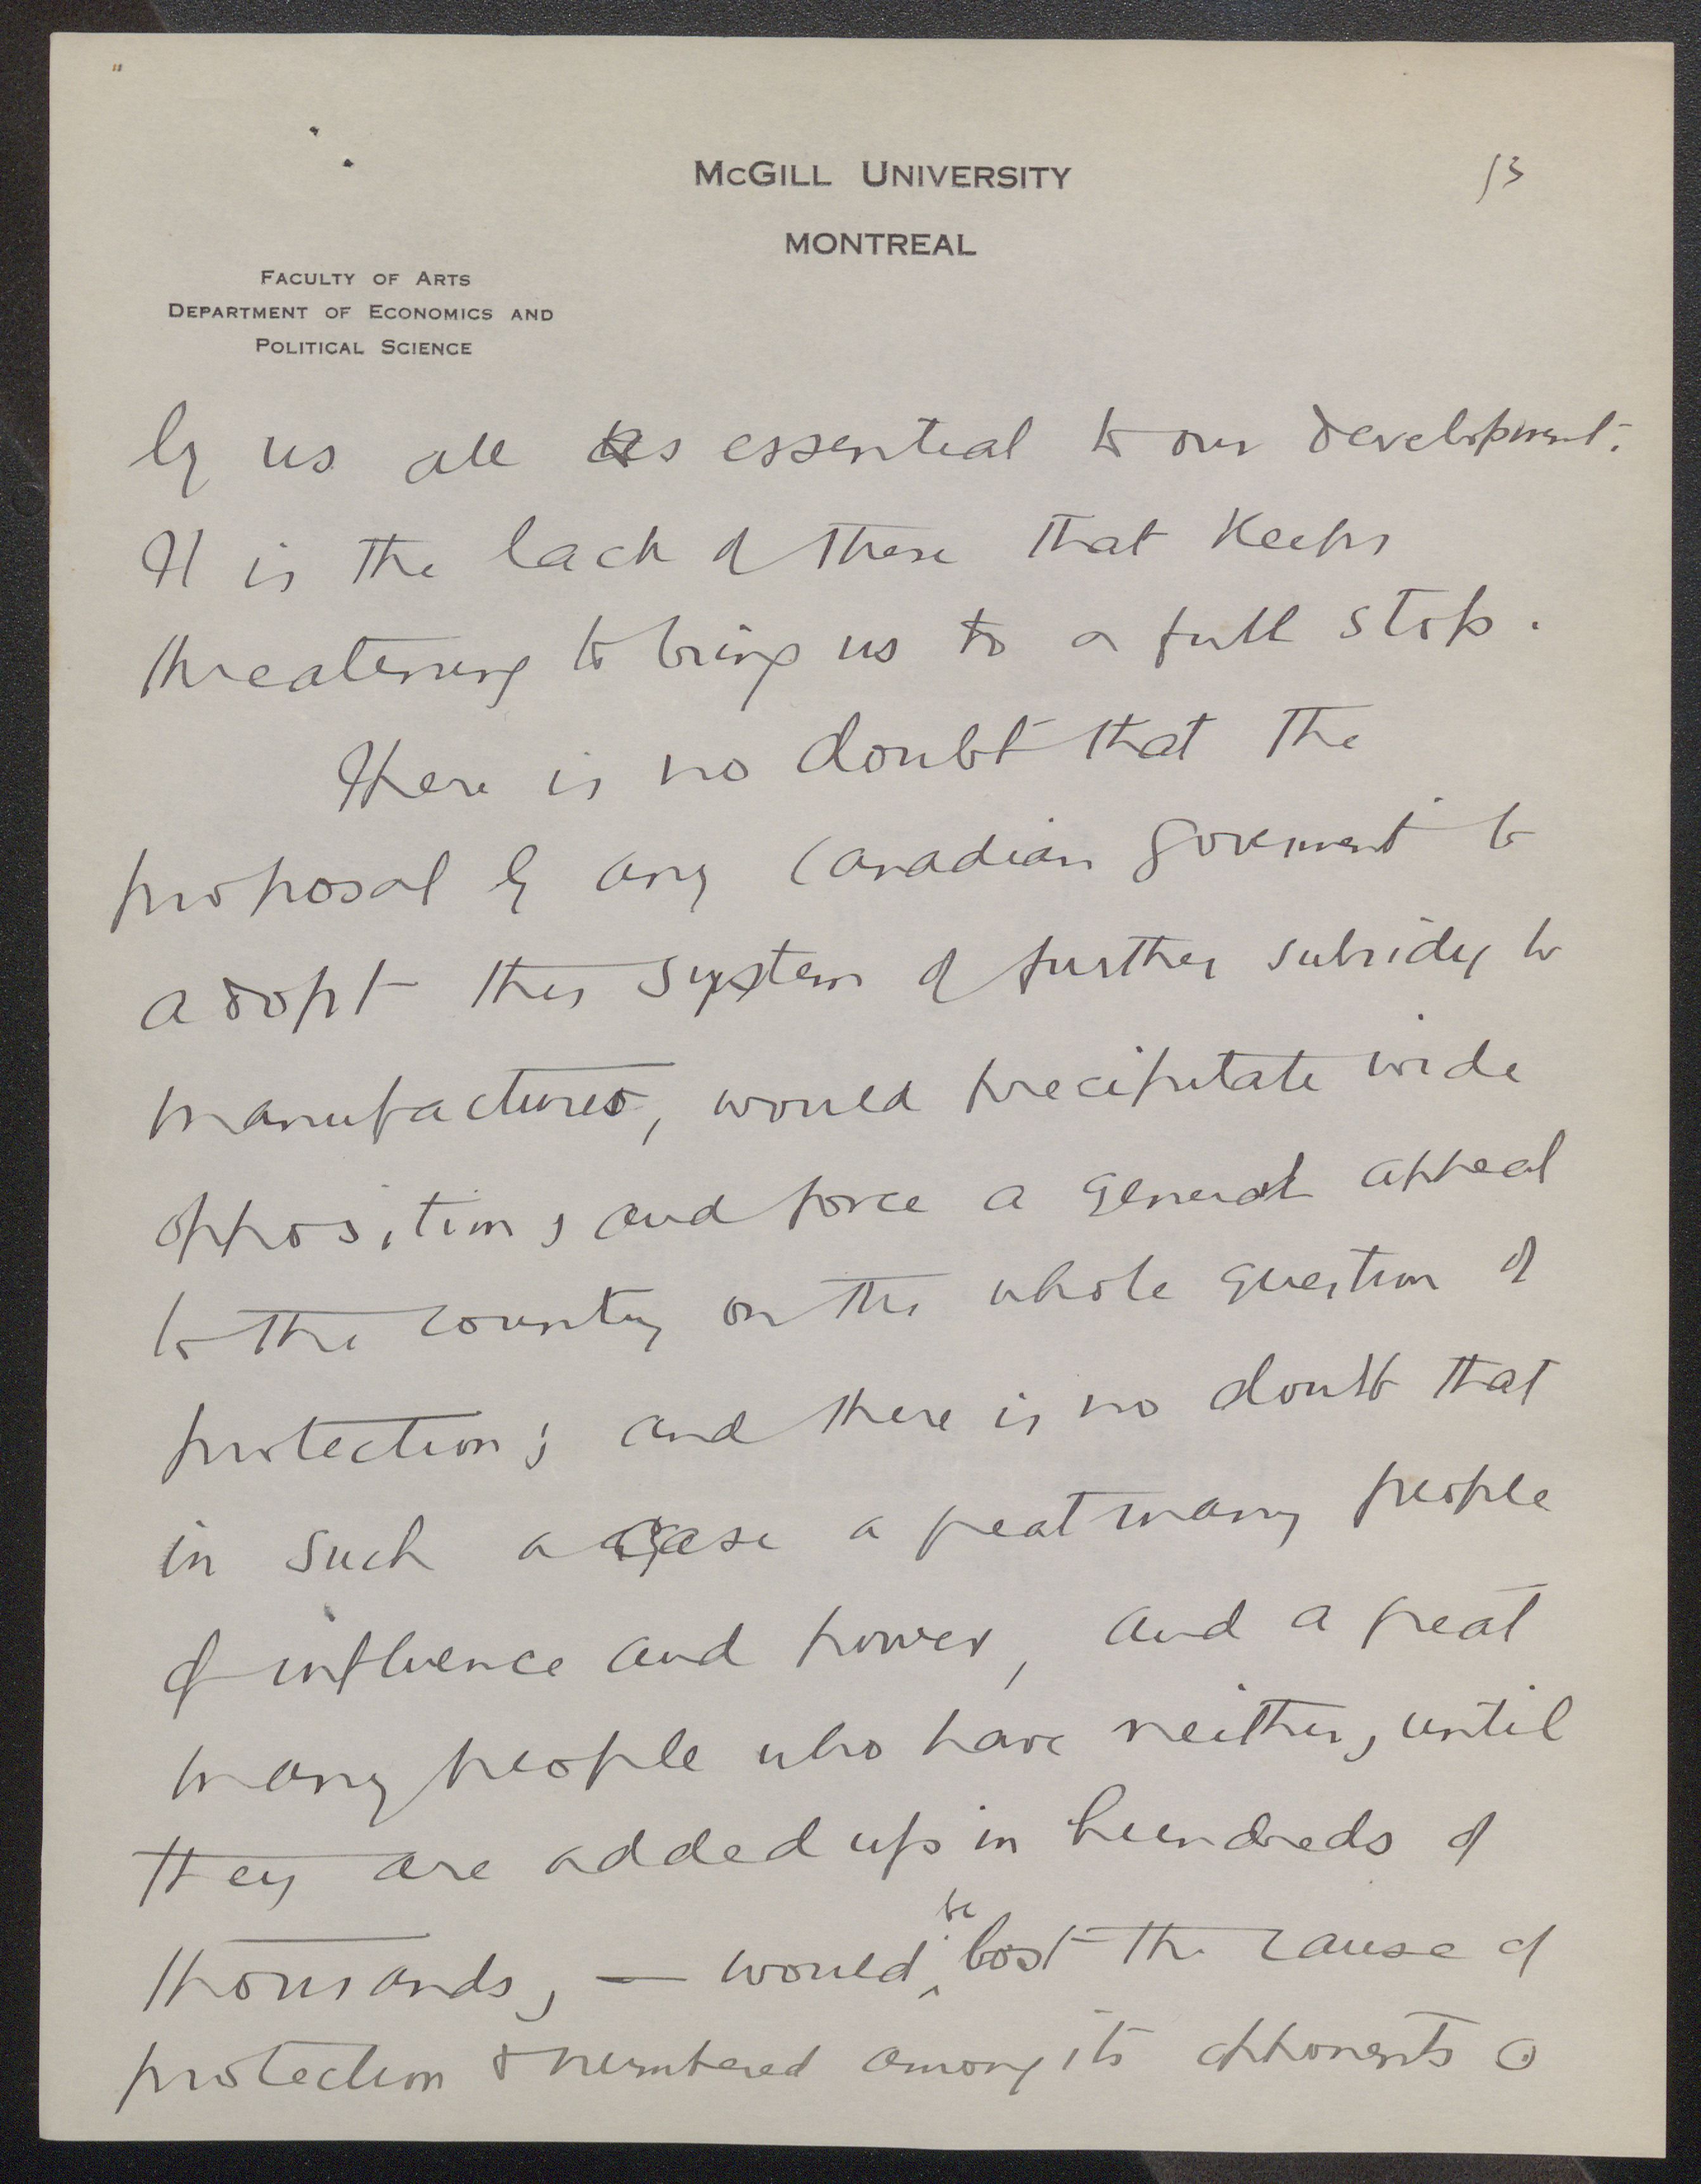 McGILL UNIVERSITY
MONTREAL
13
FACULTY OF ARTS
DEPARTMENT OF ECONOMICS AND
POLITICAL SCIENCE
by us all as essential to our development.
It is the lack of these that keeps
threatening to bring us to a full stop.
There is no doubt that the
proposal by any Canadian goverment to
adopt this system of further subsidy to
manufactures, would precipitate wide
opposition, and force a general appeal
to the country on the whole question of
protection; and there is no doubt that
in such a case a great many people
of influence and power, and a great
many people who have neither, until
they are added up in hundreds of
thousands, — would be lost the cause of
protection & numbered among its opponents.